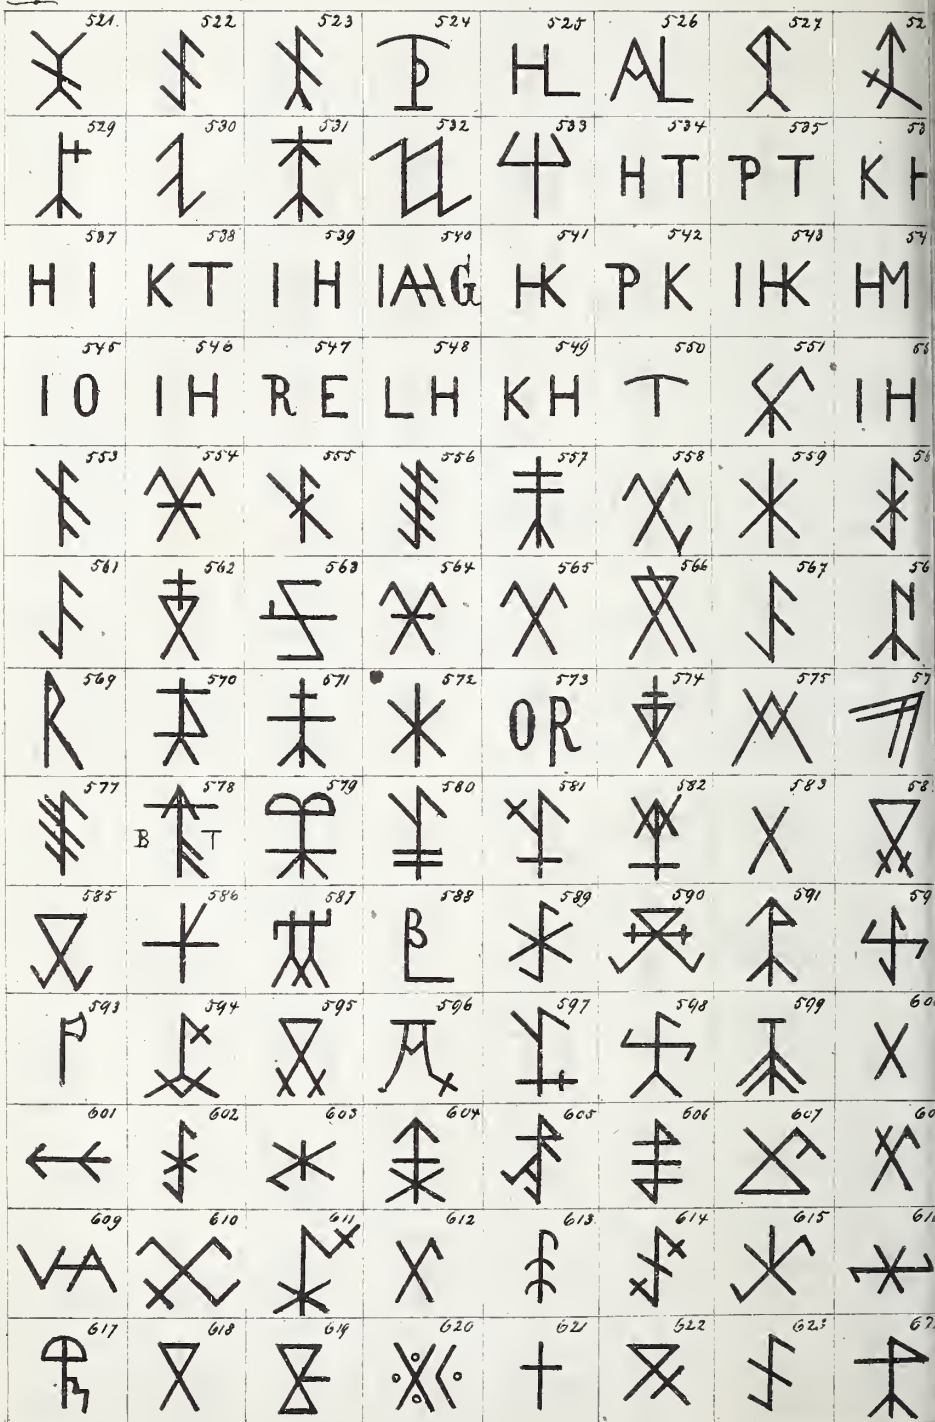 521. 522 523 524 525 526 527 52
HL AL
529 530 531 532 533 534 535 53
HT PT K
537 538 539 540 541 542 543 54
HI KT IH IAHG HK PK IHK HM
545 546 547 548 549 550 551 55
IO IH RE LH KH T IH
553 554 555 556 557 558 559 56
561 562 563 564 565 566 567 56
569 570 571 572 573 574 575 57
R OR
577 578 579 580 581 582 583 58
B T
585 586 587 588 589 590 591 59
B
593 594 595 596 597 598 599 60
601 602 603 604 605 606 607 60
609 610 611 612 613 614 615 61
VA
617 618 619 620 621 622 623 62